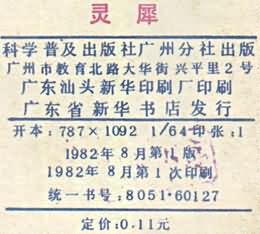 灵犀
科学普及出版社广州分社出版
广州市教育北路大华街兴平里2号
广东汕头新华印刷厂印刷
广东省新华书店发行
开本:787×1092 1/64印张:1
1982年8月第1版
1982年8月第1次印刷
统一书号:8051·60127
定价:0.11元